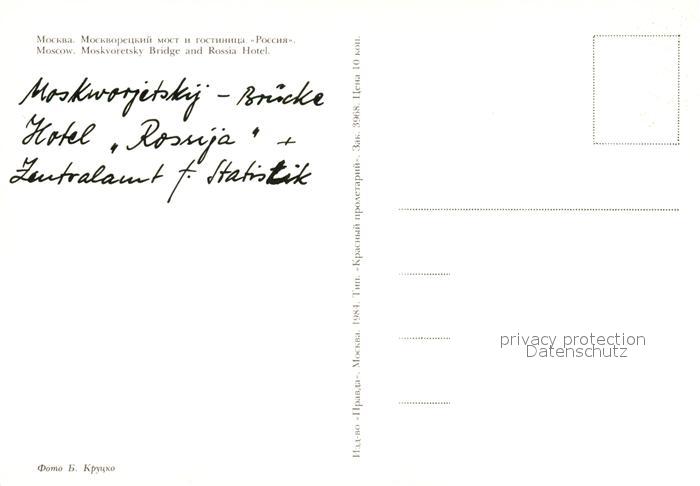 Москва. Москворецкий мост и гостиница «Россия».
Moscow. Moskvoretsky Bridge and Rossia Hotel.
Moskworjetskij – Brücke
Hotel „Rossija" +
Zentralamt f. Statistik
Фото Б. Круцко
Изд-во «Правда». Москва. 1984. Тип. «Красный пролетарий». Зак. 3968. Цена 10 коп.
privacy protection
Datenschutz